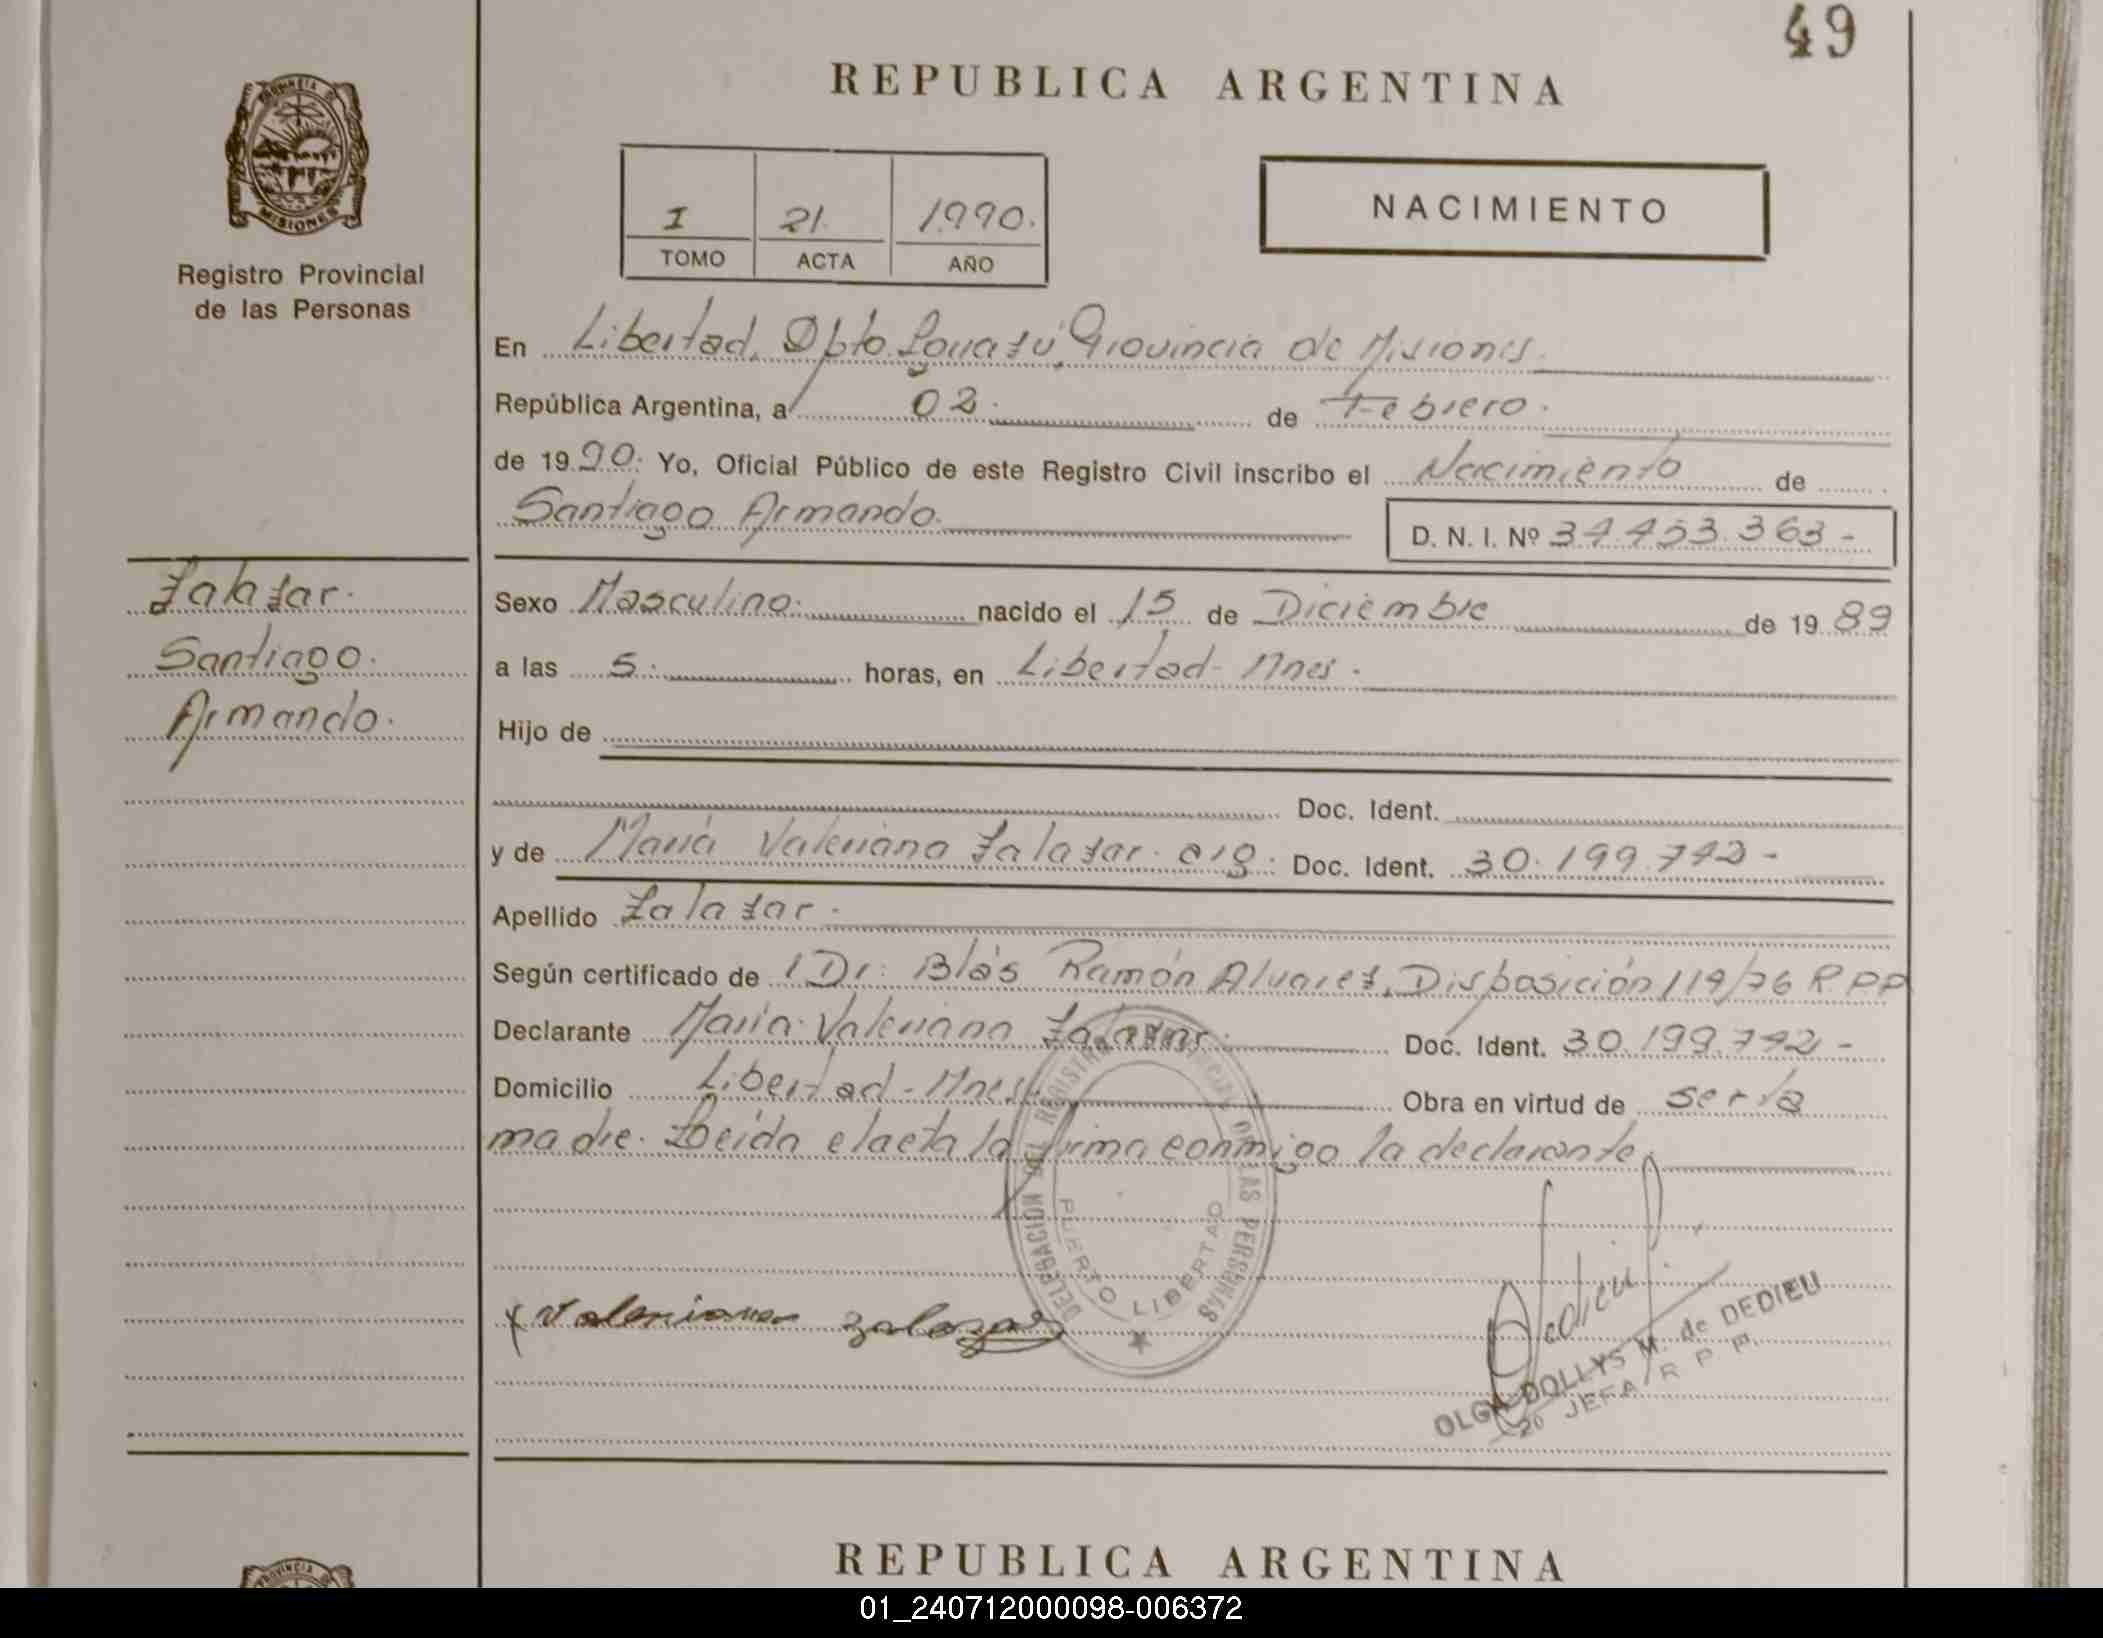 49
REPUBLICA ARGENTINA
PROVINCIA DE MISIONES
Registro Provincial
de las Personas
I 21. 1990.
TOMO ACTA AÑO
NACIMIENTO
En Libertad, Dpto. Iguazú, Provincia de Misiones.
República Argentina, a 02. de Febrero.
de 1990. Yo, Oficial Público de este Registro Civil inscribo el Nacimiento de
Santiago Armando. D. N. I. Nº 34.453.363-
Zalazar.
Santiago.
Armando.
Sexo Masculino. nacido el 15 de Diciembre de 1989
a las 5. horas, en Libertad-Mnes.
Hijo de
Doc. Ident.
y de María Valeriana Zalazar. arg. Doc. Ident. 30.199.742-
Apellido Zalazar.
Según certificado de Dr. Blás Ramón Alvarez, Disposición 119/76 R.P.P
Declarante María Valeriana Zalazar. Doc. Ident. 30.199.742-
Domicilio Libertad-Mnes. Obra en virtud de ser la
madre. Leída el acta la firma conmigo la declarante.
DELEGACION DEL REGISTRO PROVINCIAL DE LAS PERSONAS
PUERTO LIBERTAD
x Valeriana Zalazar
Dedieu
OLGA DOLLYS M. de DEDIEU
JEFA R P P
REPUBLICA ARGENTINA
PROVINCIA
01_240712000098-006372